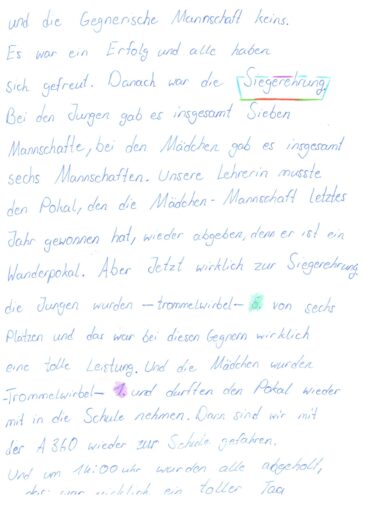 und die Gegnerische Mannschaft keins.
Es war ein Erfolg und alle haben
sich gefreut. Danach war die Siegerehrung.
Bei den Jungen gab es insgesamt Sieben
Mannschafte, bei den Mädchen gab es insgesamt
sechs Mannschaften. Unsere Lehrerin musste
den Pokal, den die Mädchen-Mannschaft letztes
Jahr gewonnen hat, wieder abgeben, denn er ist ein
Wanderpokal. Aber Jetzt wirklich zur Siegerehrung
die Jungen wurden -trommelwirbel- 6. von sechs
Plätzen und das war bei diesen Gegnern wirklich
eine tolle Leistung. Und die Mädchen wurden
-Trommelwirbel- 1. und durften den Pokal wieder
mit in die Schule nehmen. Dann sind wir mit
der A 360 wieder zur Schule gefahren.
Und um 14:00 uhr wurden alle abgeholt,
das war wirklich ein toller Tag